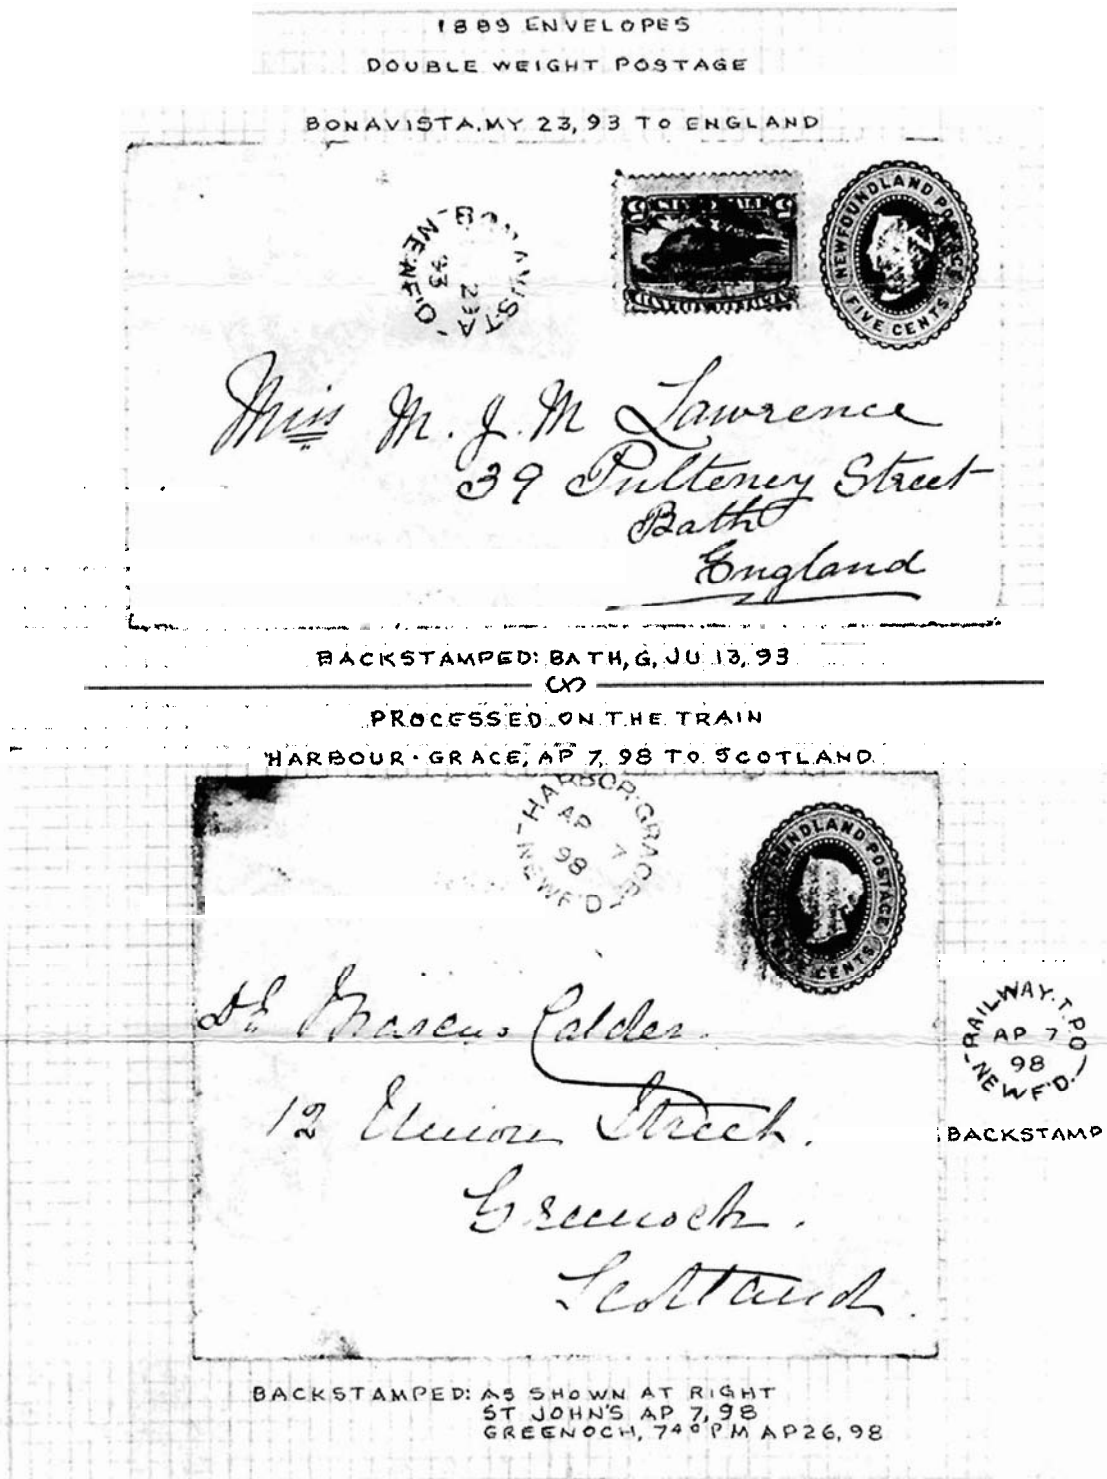 1889 ENVELOPES
DOUBLE WEIGHT POSTAGE
BONAVISTA, MY 23, 93 TO ENGLAND
BONAVISTA
23
93
NEWF'D
5 5
NEWFOUNDLAND POSTAGE
FIVE CENTS
Miss M. J. M Lawrence
39 Pulteney Street
Bath
England
BACKSTAMPED: BATH, G, JU 13, 93
PROCESSED ON THE TRAIN
HARBOUR · GRACE, AP 7, 98 TO SCOTLAND
HARBOR·GRACE
AP 7
98
NEWF'D
NEWFOUNDLAND POSTAGE
FIVE CENTS
Dr Marcus Calder.
12 Union Street.
Greenock.
Scotland.
RAILWAY.T.PO
AP 7
98
NEWF'D.
BACKSTAMP
BACKSTAMPED: AS SHOWN AT RIGHT
ST JOHN'S AP 7, 98
GREENOCH, 7 40 PM AP 26, 98